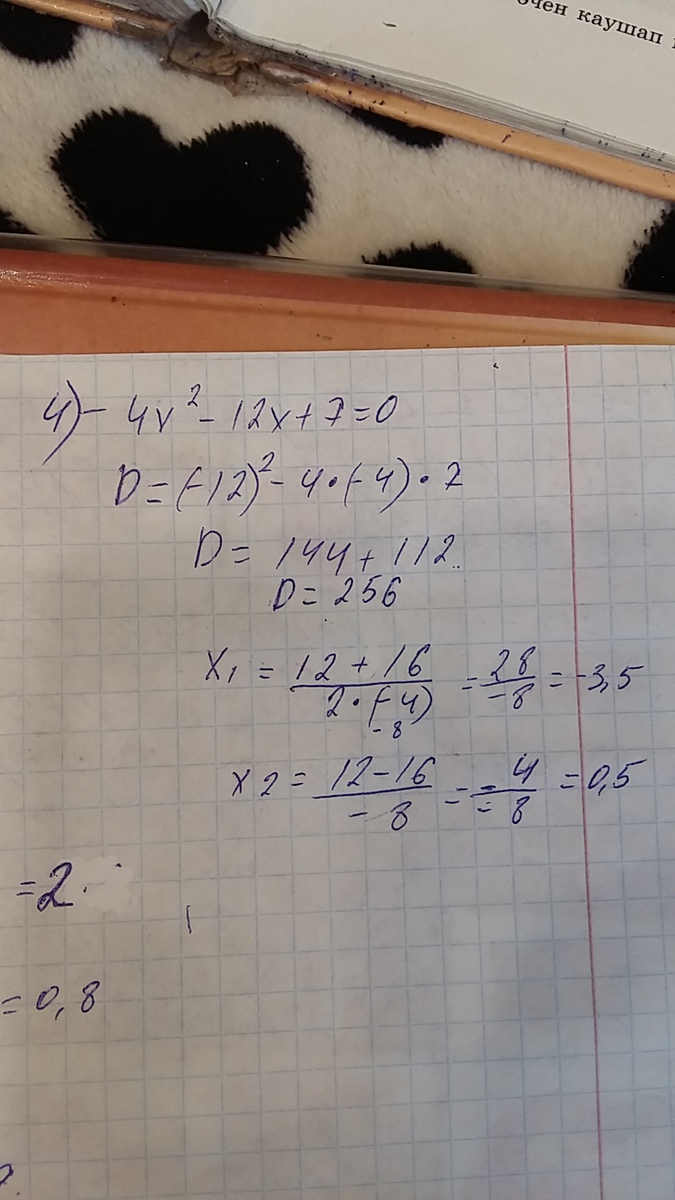 өчен каушап
4) - 4x² - 12x + 7 = 0
D = (-12)² - 4 · (-4) · 7
D = 144 + 112
D = 256
x₁ = (12 + 16)/(2 · (-4)) = 28/-8 = -3,5
-8
x₂ = (12 - 16)/-8 = -4/-8 = 0,5
= 2
= 0,8